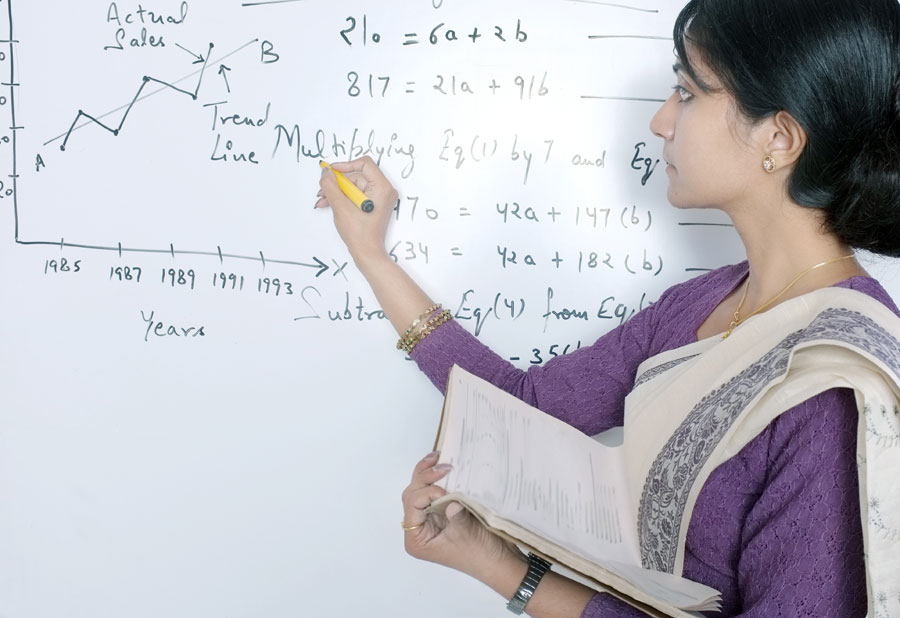 Actual
Sales
B
Trend
Line
A
20
1985 1987 1989 1991 1993
X
Years
210 = 6a + 2b
817 = 21a + 91b
Multiplying Eq(1) by 7 and Eq
470 = 42a + 147(b)
634 = 42a + 182(b)
Subtra Eq(4) from Eq(
- 35(b